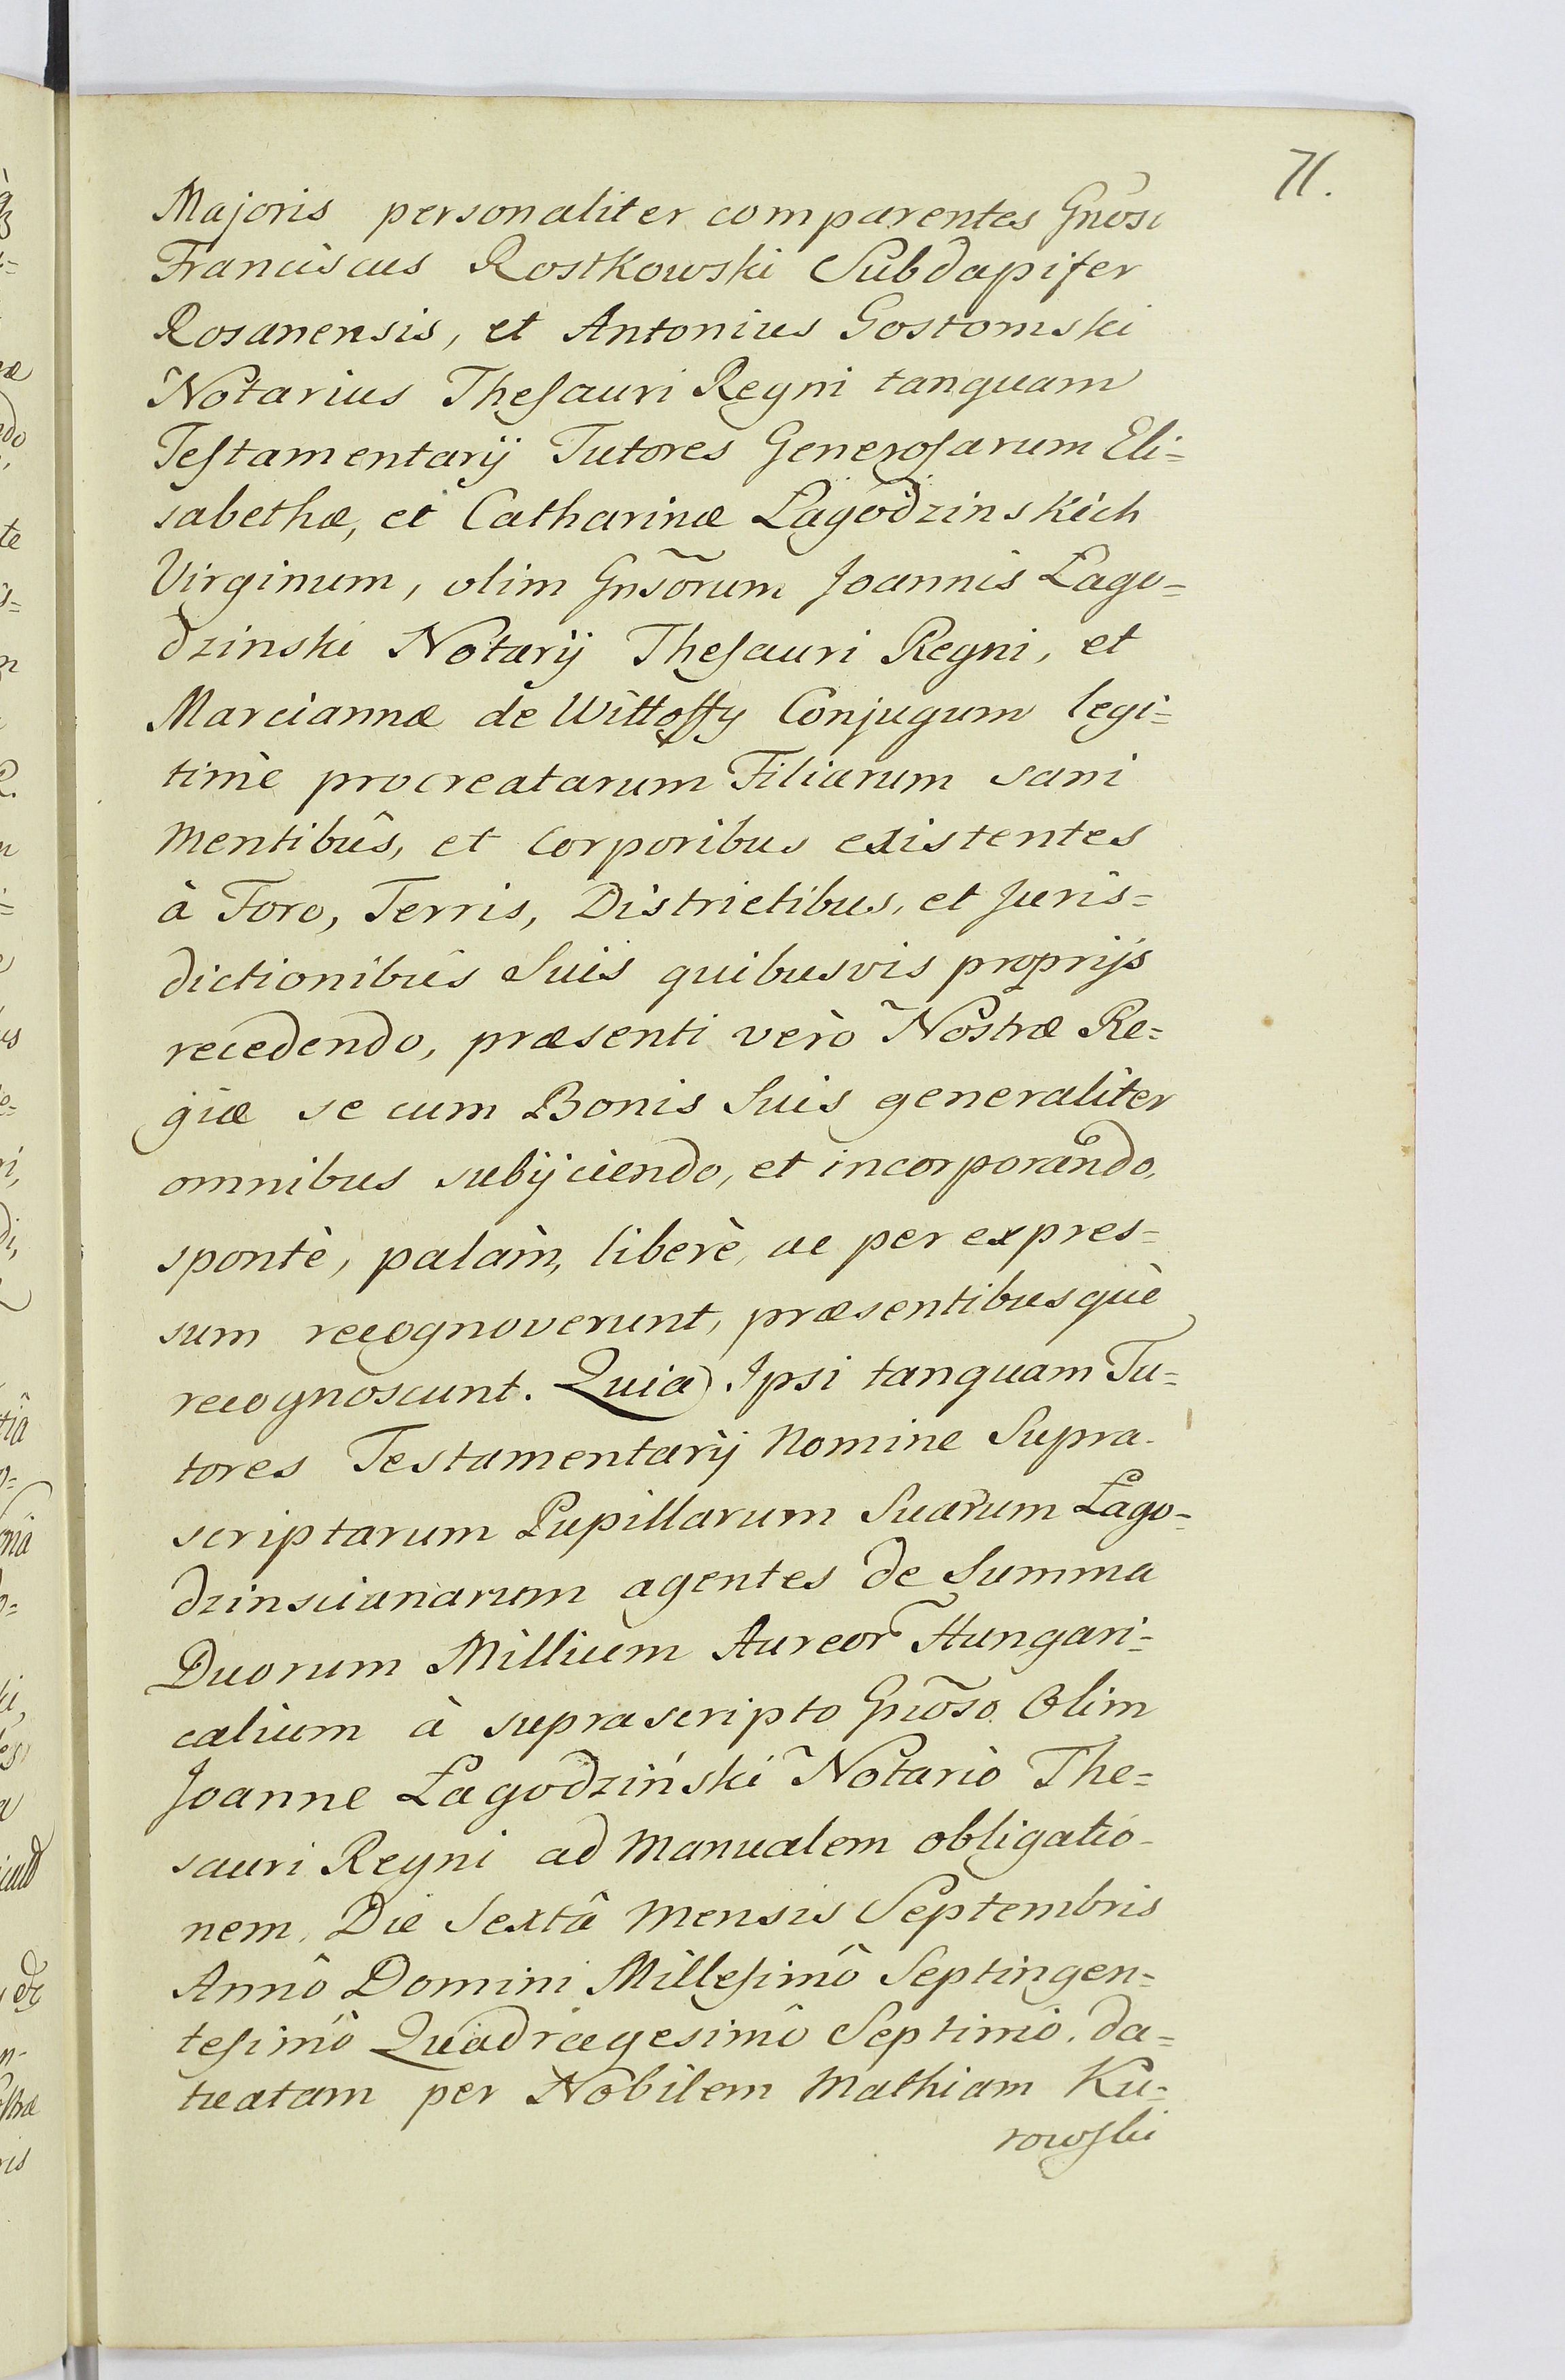 71.
Majoris personaliter comparentes Gnōsi
Franciscus Rostkowski Subdapifer
Rosanensis, et Antonius Gostomski
Notarius Thesauri Regni tanquam
Testamentarij Tutores Generosarum Eli=
sabethæ, et Catharinæ Łagodzinskich
Virginum, olim Gnsōrum Joannis Łago=
dzinski Notarij Thesauri Regni, et
Marciannæ de Wittoffy Conjugum legi=
timè procreatarum Filiarum sani
Mentibûs, et Corporibus existentes
à Foro, Terris, Districtibus, et Juris=
dictionibûs Suis quibusvis proprijs
recedendo, præsenti verò Nostræ Re=
giæ se cum Bonis Suis generaliter
omnibus subijciendo, et incorporando,
spontè, palàm, liberè, ac per expres=
sum recognoverunt, præsentibusquè
recognoscunt. Quia Ipsi tanquam Tu=
tores Testamentarij Nomine Supra-
scriptarum Pupillarum Suarum Łago=
dzinscianarum agentes de Summa
Duorum Millium Aureor~ Hungari=
calium à suprascripto Gnōso Olim
Joanne Łagodziński Notariò The=
sauri Regni ad Manualem obligatio-
nem, Die Sextâ Mensis Septembris
Annô Domini Millesimô Septingen=
tesimô Quadragesimô Septimô. da=
tuatam per Nobilem Mathiam Ku=
rowski